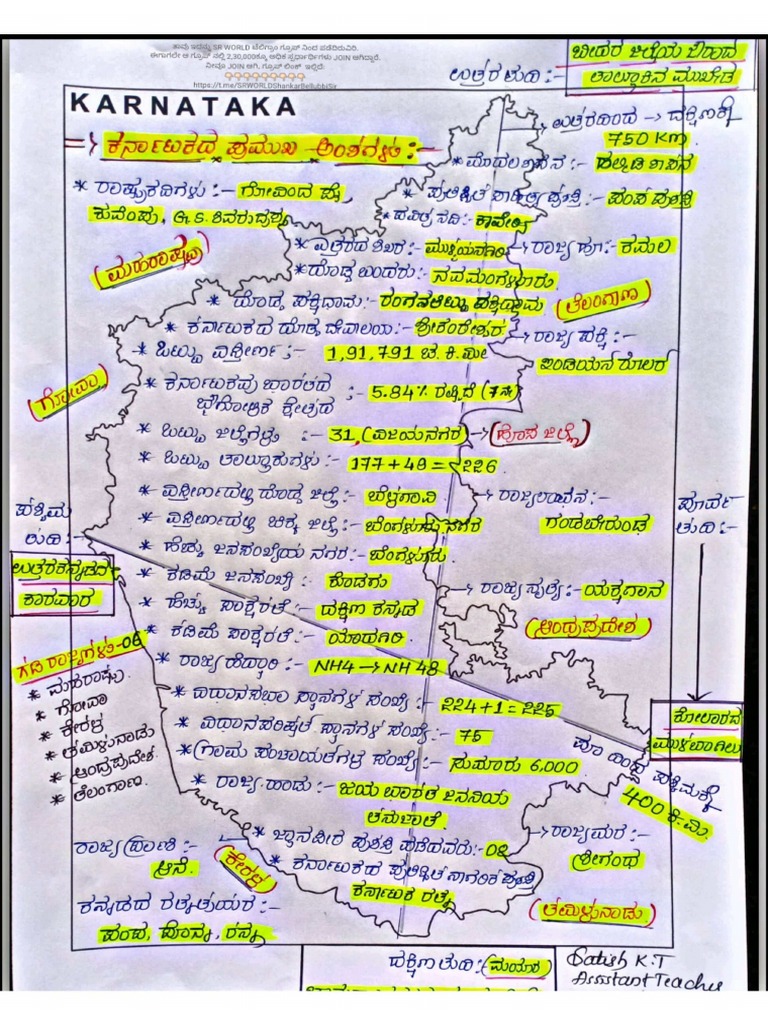 ತಾವು ಇದನ್ನು SR WORLD ಟೆಲಿಗ್ರಾಂ ಗ್ರೂಪ್ ನಿಂದ ಪಡೆದಿರುವಿರಿ.
ಈಗಾಗಲೇ ಈ ಗ್ರೂಪ್ ನಲ್ಲಿ 2,30,000ಕ್ಕೂ ಅಧಿಕ ಸ್ಪರ್ಧಾರ್ಥಿಗಳು JOIN ಆಗಿದ್ದಾರೆ.
ನೀವೂ JOIN ಆಗಿ, ಗ್ರೂಪ್ ಲಿಂಕ್ ಇಲ್ಲಿದೆ:
https://t.me/SRWORLDShankarBellubbiSir
ಉತ್ತರ ತುದಿ :-
ಬೀದರ ಜಿಲ್ಲೆಯ ಔರಾದ
ತಾಲ್ಲೂಕಿನ ಮುಖೇಡ
KARNATAKA
ಉತ್ತರದಿಂದ → ದಕ್ಷಿಣಕ್ಕೆ
750 Km
=> ಕರ್ನಾಟಕದ ಪ್ರಮುಖ ಅಂಶಗಳು :-
* ಮೊದಲ ಶಾಸನ :- ಹಲ್ಮಿಡಿ ಶಾಸನ
* ರಾಷ್ಟ್ರಕವಿಗಳು :- ಗೋವಿಂದ ಪೈ,
ಕುವೆಂಪು, G.S. ಶಿವರುದ್ರಪ್ಪ
* ಪ್ರತಿಷ್ಠಿತ ಸಾಹಿತ್ಯ ಪ್ರಶಸ್ತಿ :- ಪಂಪ ಪ್ರಶಸ್ತಿ
* ಪವಿತ್ರ ನದಿ :- ಕಾವೇರಿ
* ಎತ್ತರದ ಶಿಖರ :- ಮುಳ್ಳಯನಗಿರಿ → ರಾಜ್ಯ ಹೂ :- ಕಮಲ
(ಮಹಾರಾಷ್ಟ್ರ)
* ದೊಡ್ಡ ಬಂದರು :- ನವಮಂಗಳೂರು
* ದೊಡ್ಡ ಪಕ್ಷಿಧಾಮ :- ರಂಗನತಿಟ್ಟು ಪಕ್ಷಿಧಾಮ
(ತೆಲಂಗಾಣ)
* ಕರ್ನಾಟಕದ ದೊಡ್ಡ ದೇವಾಲಯ :- ಶ್ರೀಕಂಠೇಶ್ವರ
→ ರಾಜ್ಯ ಪಕ್ಷಿ :-
ಇಂಡಿಯನ ರೋಲರ
* ಒಟ್ಟು ವಿಸ್ತೀರ್ಣ :- 1,91,791 ಚ.ಕಿ.ಮೀ
(ಗೋವಾ)
* ಕರ್ನಾಟಕವು ಭಾರತದ
ಭೌಗೋಳಿಕ ಕ್ಷೇತ್ರದ :- 5.84% ರಷ್ಟಿದೆ (7ನೇ)
* ಒಟ್ಟು ಜಿಲ್ಲೆಗಳು :- 31, (ವಿಜಯನಗರ) → (ಹೊಸ ಜಿಲ್ಲೆ)
* ಒಟ್ಟು ತಾಲ್ಲೂಕುಗಳು :- 177+49=226
* ವಿಸ್ತೀರ್ಣದಲ್ಲಿ ದೊಡ್ಡ ಜಿಲ್ಲೆ :- ಬೆಳಗಾವಿ
→ ರಾಜ್ಯಲಾಂಛನ :-
ಗಂಡಬೇರುಂಡ
* ವಿಸ್ತೀರ್ಣದಲ್ಲಿ ಚಿಕ್ಕ ಜಿಲ್ಲೆ :- ಬೆಂಗಳೂರು ನಗರ
ಪಶ್ಚಿಮ
ತುದಿ :-
ಉತ್ತರಕನ್ನಡದ
ಕಾರವಾರ
ಪೂರ್ವ
ತುದಿ :-
* ಹೆಚ್ಚು ಜನಸಂಖ್ಯೆಯ ನಗರ :- ಬೆಂಗಳೂರು
* ಕಡಿಮೆ ಜನಸಂಖ್ಯೆ :- ಕೊಡಗು
→ ರಾಜ್ಯ ನೃತ್ಯ :- ಯಕ್ಷಗಾನ
* ಹೆಚ್ಚು ಸಾಕ್ಷರತೆ :- ದಕ್ಷಿಣ ಕನ್ನಡ
(ಆಂಧ್ರಪ್ರದೇಶ)
* ಕಡಿಮೆ ಸಾಕ್ಷರತೆ :- ಯಾದಗಿರಿ
* ರಾಜ್ಯ ಹೆದ್ದಾರಿ :- NH4 → NH 48
ಗಡಿ ರಾಜ್ಯಗಳು-06
* ಮಹಾರಾಷ್ಟ್ರ
* ಗೋವಾ
* ಕೇರಳ
* ತಮಿಳುನಾಡು
* ಆಂಧ್ರಪ್ರದೇಶ
* ತೆಲಂಗಾಣ.
* ವಿಧಾನಸಭಾ ಸ್ಥಾನಗಳ ಸಂಖ್ಯೆ :- 224+1=225
* ವಿಧಾನಪರಿಷತ್ ಸ್ಥಾನಗಳ ಸಂಖ್ಯೆ :- 75
ಕೋಲಾರದ
ಮುಳಬಾಗಿಲು
* ಗ್ರಾಮ ಪಂಚಾಯತಗಳ ಸಂಖ್ಯೆ :- ಸುಮಾರು 6,000
ಪಶ್ಚಿಮಕ್ಕೆ
400 ಕಿ.ಮಿ.
* ರಾಜ್ಯ ಹಾಡು :- ಜಯ ಭಾರತ ಜನನಿಯ
ತನುಜಾತೆ.
* ಜ್ಞಾನಪೀಠ ಪ್ರಶಸ್ತಿ ಪಡೆದವರು :- 08
→ ರಾಜ್ಯಮರ :-
ಶ್ರೀಗಂಧ
* ಕರ್ನಾಟಕದ ಪ್ರತಿಷ್ಠಿತ ನಾಗರಿಕ ಪ್ರಶಸ್ತಿ
ಕರ್ನಾಟಕ ರತ್ನ
ರಾಜ್ಯ ಪ್ರಾಣಿ :-
ಆನೆ.
(ಕೇರಳ)
(ತಮಿಳುನಾಡು.)
ಕನ್ನಡದ ರತ್ನತ್ರಯರ :-
ಪಂಪ, ಪೊನ್ನ, ರನ್ನ
ದಕ್ಷಿಣ ತುದಿ :-
Satish K.T
Assistant Teacher